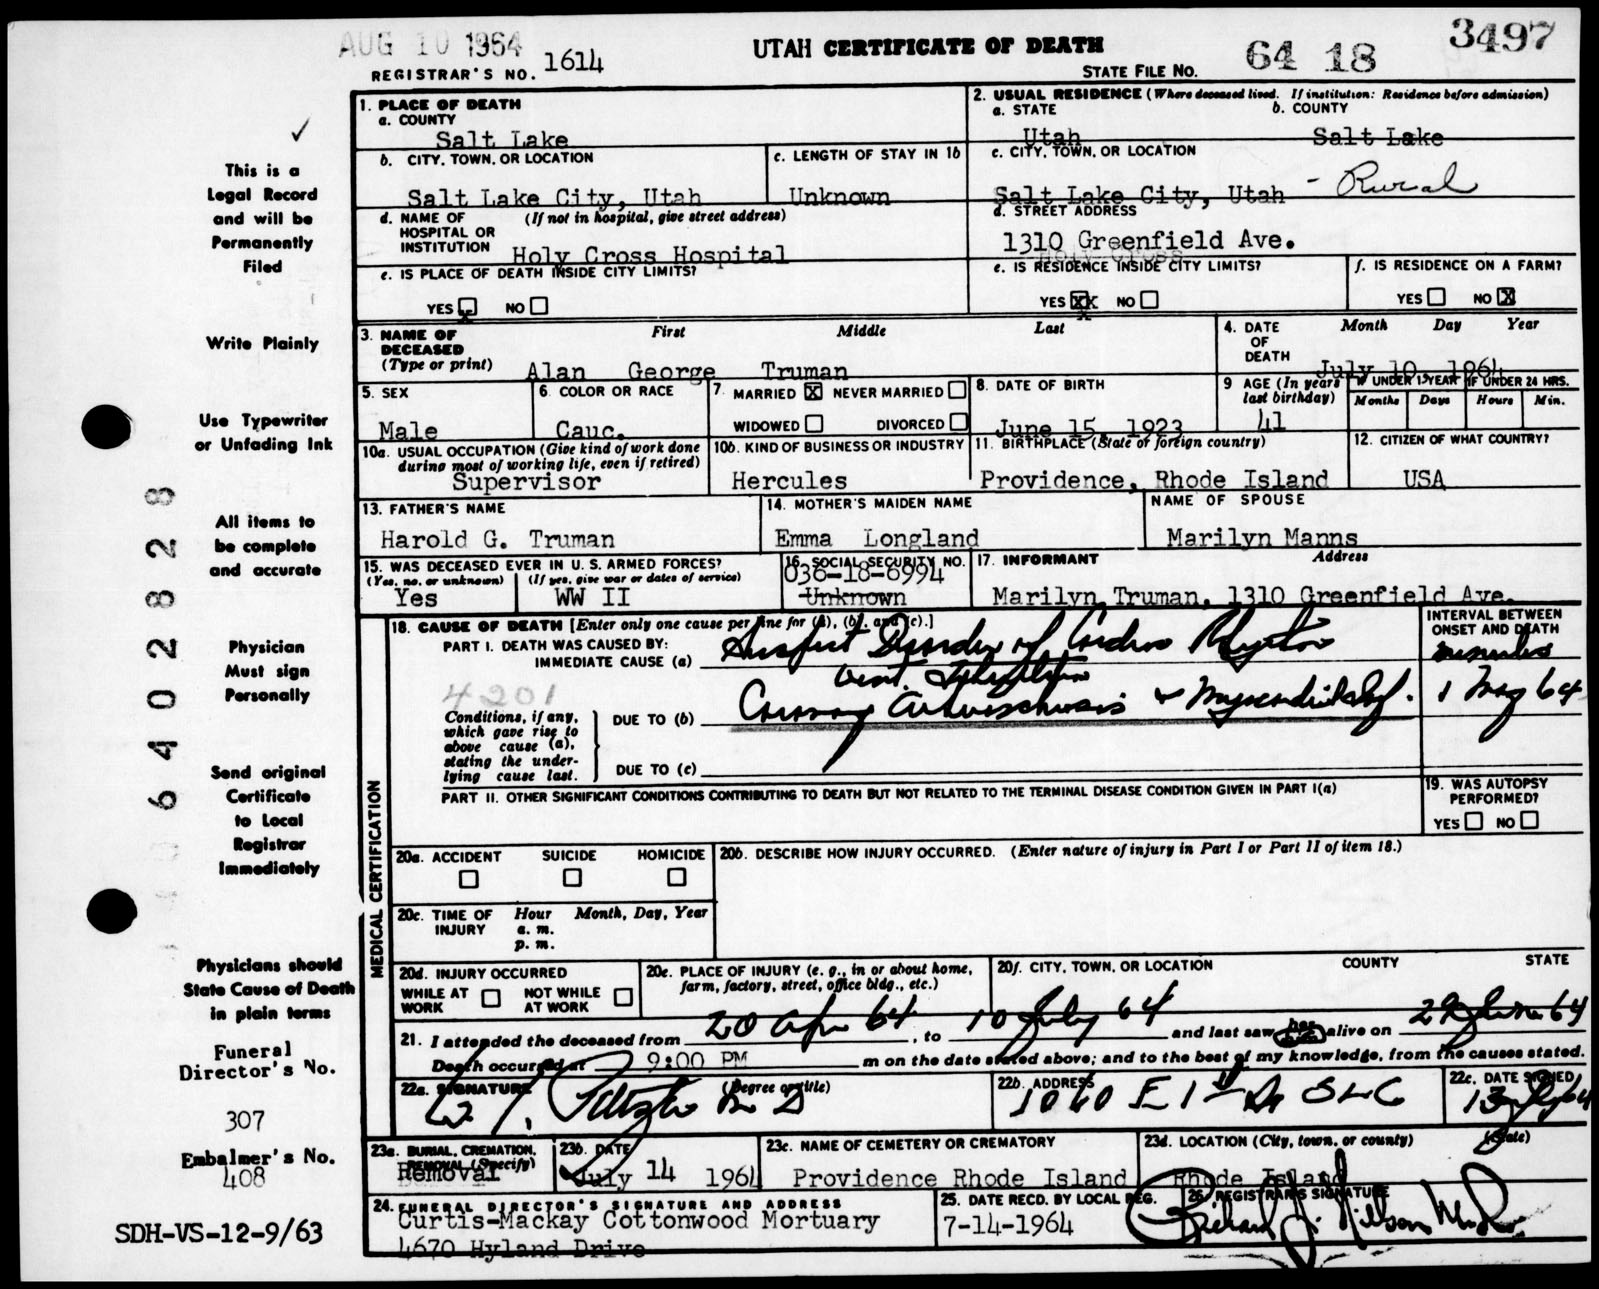 AUG 10 1964
REGISTRAR'S NO. 1614
UTAH CERTIFICATE OF DEATH
STATE FILE NO. 64 18 3497
This is a
Legal Record
and will be
Permanently
Filed
Write Plainly
Use Typewriter
or Unfading Ink
All items to
be complete
and accurate
Physician
Must sign
Personally
Send original
Certificate
to Local
Registrar
Immediately
Physicians should
State Cause of Death
in plain terms
Funeral
Director's No.
307
Embalmer's No.
408
SDH-VS-12-9/63
64028228
1. PLACE OF DEATH
a. COUNTY
Salt Lake
2. USUAL RESIDENCE (Where deceased lived. If institution: Residence before admission)
a. STATE b. COUNTY
Utah Salt Lake
b. CITY, TOWN, OR LOCATION
Salt Lake City, Utah
c. LENGTH OF STAY IN 1b
Unknown
c. CITY, TOWN, OR LOCATION
Salt Lake City, Utah - Rural
d. NAME OF (If not in hospital, give street address)
HOSPITAL OR
INSTITUTION Holy Cross Hospital
d. STREET ADDRESS
1310 Greenfield Ave.
Holy Cross
e. IS PLACE OF DEATH INSIDE CITY LIMITS?
YES X NO
e. IS RESIDENCE INSIDE CITY LIMITS?
YES XX NO
X
f. IS RESIDENCE ON A FARM?
YES NO X
3. NAME OF First Middle Last
DECEASED
(Type or print) Alan George Truman
4. DATE Month Day Year
OF
DEATH July 10, 1964
5. SEX
Male
6. COLOR OR RACE
Cauc.
7. MARRIED X NEVER MARRIED
WIDOWED DIVORCED
8. DATE OF BIRTH
June 15, 1923
9 AGE (In years
last birthday)
41
IF UNDER 1 YEAR IF UNDER 24 HRS.
Months Days Hours Min.
10a. USUAL OCCUPATION (Give kind of work done
during most of working life, even if retired)
Supervisor
10b. KIND OF BUSINESS OR INDUSTRY
Hercules
11. BIRTHPLACE (State or foreign country)
Providence, Rhode Island
12. CITIZEN OF WHAT COUNTRY?
USA
13. FATHER'S NAME
Harold G. Truman
14. MOTHER'S MAIDEN NAME
Emma Longland
NAME OF SPOUSE
Marilyn Manns
15. WAS DECEASED EVER IN U. S. ARMED FORCES?
(Yes, no, or unknown) (If yes, give war or dates of service)
Yes WW II
16. SOCIAL SECURITY NO.
036-18-6994
Unknown
17. INFORMANT Address
Marilyn Truman, 1310 Greenfield Ave.
MEDICAL CERTIFICATION
18. CAUSE OF DEATH [Enter only one cause per line for (a), (b), and (c).]
INTERVAL BETWEEN
ONSET AND DEATH
PART I. DEATH WAS CAUSED BY:
IMMEDIATE CAUSE (a) Suspect Disorder of Cardiac Rhythm minutes
vent.
4201
Conditions, if any,
which gave rise to
above cause (a),
stating the under-
lying cause last.
DUE TO (b) Coronary Arteriosclerosis + 1 May 64
DUE TO (c)
PART II. OTHER SIGNIFICANT CONDITIONS CONTRIBUTING TO DEATH BUT NOT RELATED TO THE TERMINAL DISEASE CONDITION GIVEN IN PART I(a)
19. WAS AUTOPSY
PERFORMED?
YES NO
20a. ACCIDENT SUICIDE HOMICIDE
20b. DESCRIBE HOW INJURY OCCURRED. (Enter nature of injury in Part I or Part II of item 18.)
20c. TIME OF Hour Month, Day, Year
INJURY a. m.
p. m.
20d. INJURY OCCURRED
WHILE AT NOT WHILE
WORK AT WORK
20e. PLACE OF INJURY (e. g., in or about home,
farm, factory, street, office bldg., etc.)
20f. CITY, TOWN, OR LOCATION COUNTY STATE
21. I attended the deceased from 20 Apr 64, to 10 July 64 and last saw her him alive on 29 June 64
Death occurred at 9:00 PM m on the date stated above; and to the best of my knowledge, from the causes stated.
22a. SIGNATURE (Degree or title)
MD
22b. ADDRESS
1060 E 1st So SLC
22c. DATE SIGNED
13 July 64
23a. BURIAL, CREMATION,
REMOVAL (Specify)
Removal
23b. DATE
July 14 1964
23c. NAME OF CEMETERY OR CREMATORY
Providence Rhode Island
23d. LOCATION (City, town, or county) (State)
Rhode Island
24. FUNERAL DIRECTOR'S SIGNATURE AND ADDRESS
Curtis-Mackay Cottonwood Mortuary
4670 Hyland Drive
25. DATE RECD. BY LOCAL REG.
7-14-1964
26. REGISTRAR'S SIGNATURE
Richard J. Nilsson